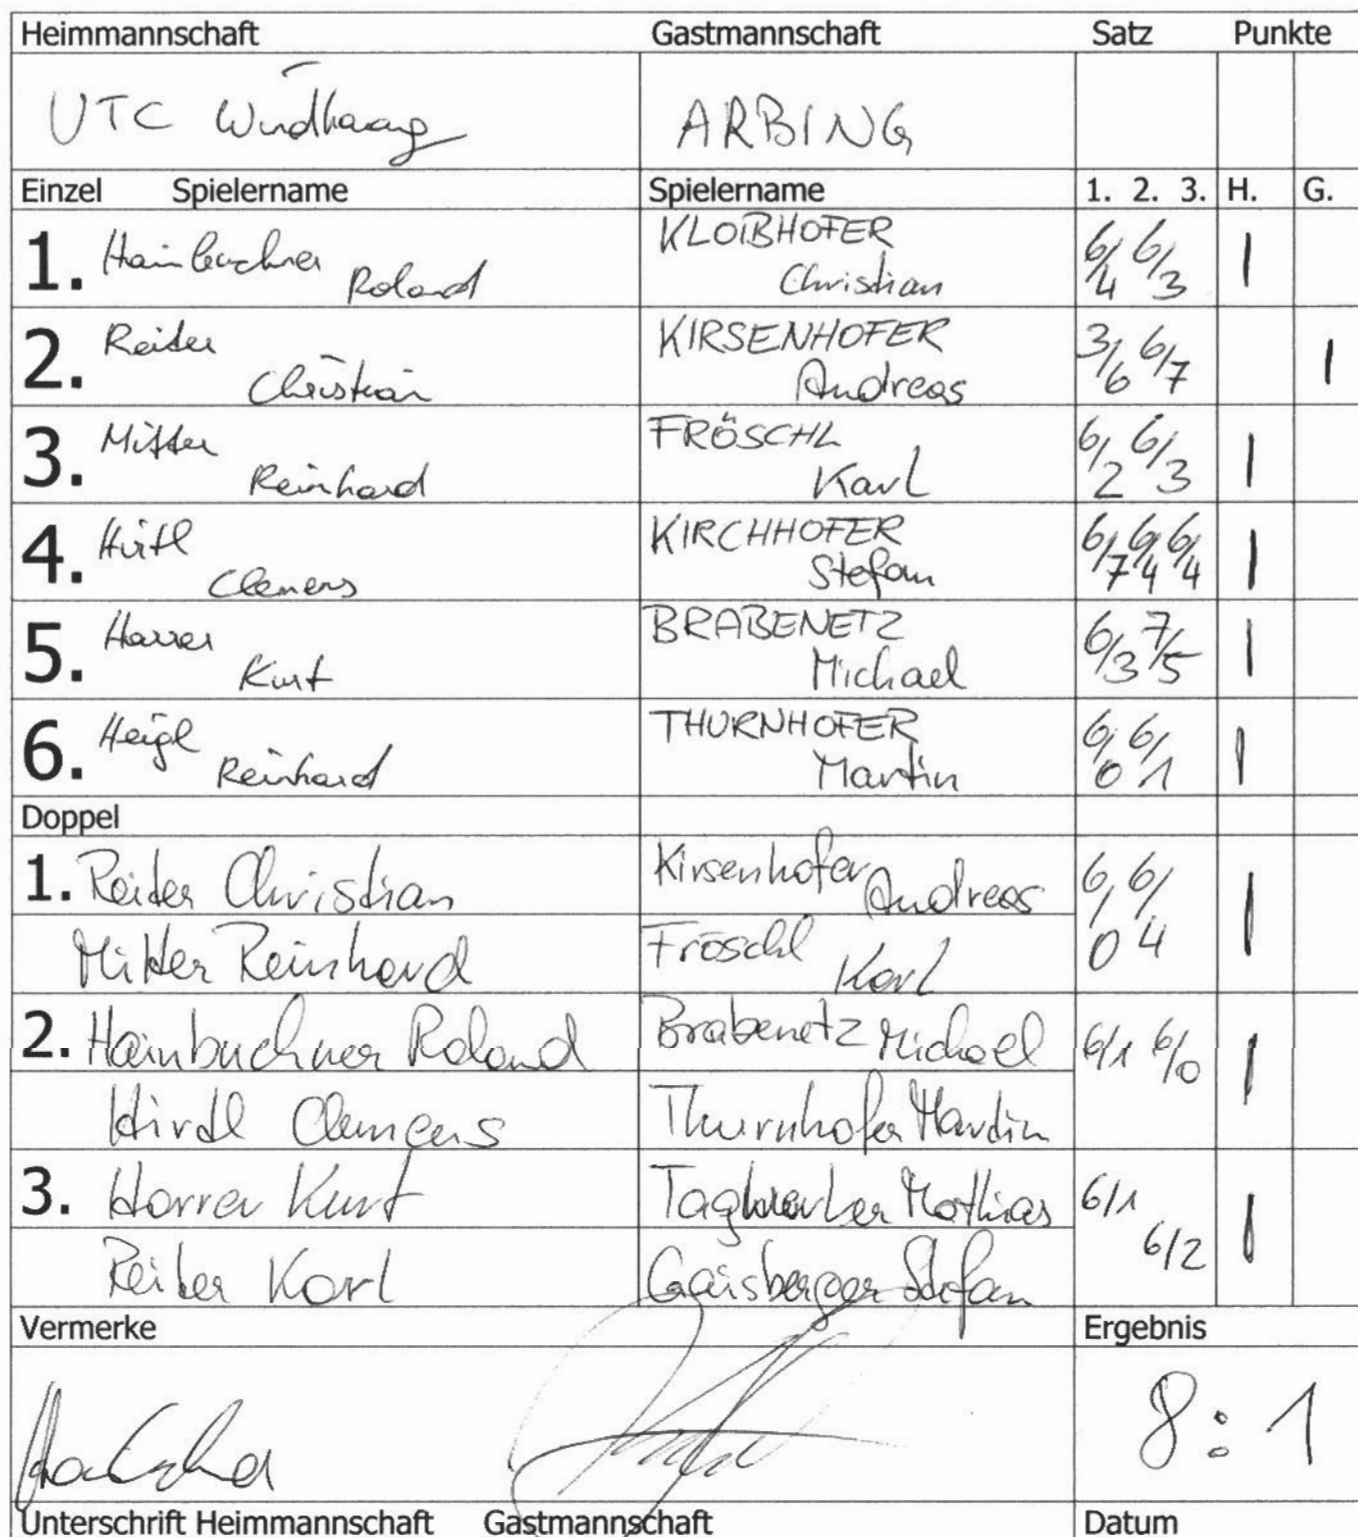 Heimmannschaft Gastmannschaft Satz Punkte
UTC Windhaag ARBING
Einzel Spielername Spielername 1. 2. 3. H. G.
1. Hainbuchner Roland KLOIBHOFER Christian 6/4 6/3 1
2. Reiter Christian KIRSENHOFER Andreas 3/6 6/7 1
3. Mitter Reinhard FRÖSCHL Karl 6/2 6/3 1
4. Hirtl Clemens KIRCHHOFER Stefan 6/7 6/4 6/4 1
5. Harrer Kurt BRABENETZ Michael 6/3 7/5 1
6. Heigl Reinhard THURNHOFER Martin 6/0 6/1 1
Doppel
1. Reiter Christian Kirsenhofer Andreas 6/0 6/4 1
Mitter Reinhard Fröschl Karl
2. Hainbuchner Roland Brabenetz Michael 6/1 6/0 1
Hirtl Clemens Thurnhofer Martin
3. Harrer Kurt Tagwerker Mathias 6/1 6/2 1
Reiter Karl Gaisberger Stefan
Vermerke Ergebnis
8:1
Unterschrift Heimmannschaft Gastmannschaft Datum